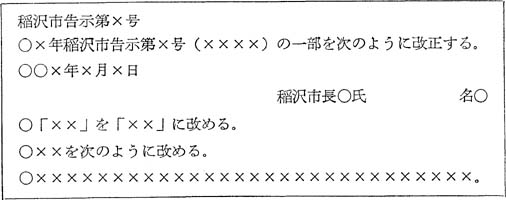 稲沢市告示第×号
○×年稲沢市告示第×号（××××）の一部を次のように改正する。
○○×年×月×日
稲沢市長○氏　　　　　名○
○「××」を「××」に改める。
○××を次のように改める。
○×××××××××××××××××××××××××××××。